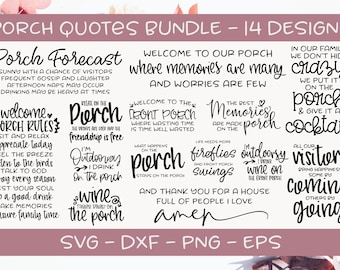 PORCH QUOTES BUNDLE - 14 DESIGN
Porch Forecast
SUNNY WITH A CHANCE OF VISITORS
FREQUENT GOSSIP AND LAUGHTER
AFTERNOON NAPS MAY OCCUR
DRINKING MAY BE HEAVY AT TIMES
WELCOME TO OUR PORCH
where memories are many
AND WORRIES ARE FEW
IN OUR FAMILY
WE DON'T HIDE
crazy
WE PUT IT
on the
porch
& GIVE IT A
cocktail
welcome
PORCH RULES
SIT AND RELAX
appreciate today
FEEL THE BREEZE
listen to the birds
TALK TO GOD
REST YOUR SOUL
have a good drink
MAKE MEMORIES
RELAX ON THE
Porch
friendship is free
I'm
Outdoorsy
I PARTY
on the porch
wine
on the porch
WELCOME TO THE
front porch
WHERE WASTING TIME
IS TIME WELL WASTED
WHAT HAPPENS
ON THE
porch
STAYS ON THE
porch
THE BEST
Memories
ARE MADE
on the porch
LIFE NEEDS MORE
fireflies
AND FRONT PORCH
swings
I'm
outdoorsy
I DRINK
wine ON THE
front porch
ALL OUR
visitors
BRING HAPPINESS
SOME BY
coming
OTHERS BY
going
AND THANK YOU FOR A HOUSE
FULL OF PEOPLE I LOVE
amen
SVG - DXF - PNG - EPS